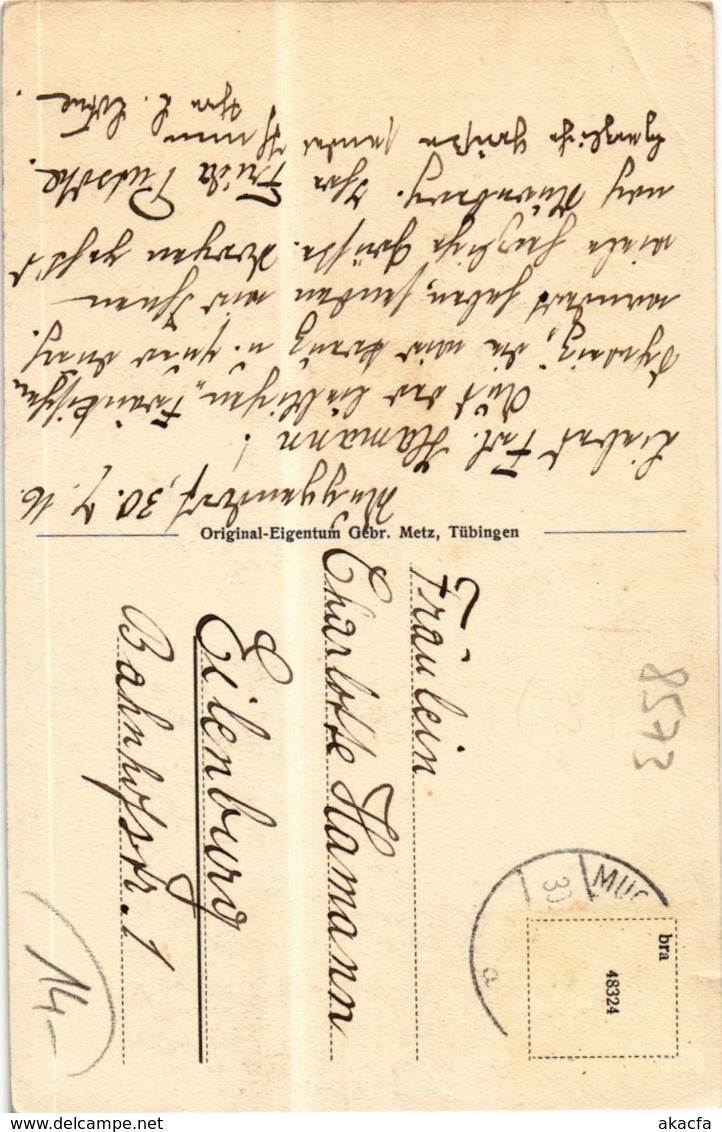 Muggendorf, 30. 7. 16.
Liebes Frl. Hamann!
Aus der lieblichen „Fränkischen
Schweiz", die wir kreuz u. quer durch-
wandert haben, senden wir Ihnen
viele herzliche Grüße. Morgen geht's
nach Nürnberg. Ihre Frida
Herzliche Grüße sendet Ihnen
Ihre L.
Original-Eigentum Gebr. Metz, Tübingen
Fräulein
Charlotte Hamann
Eilenburg
Bahnhofstr. 1
8573
MUG
30
a
bra
48324
14-
akpool
akacfa